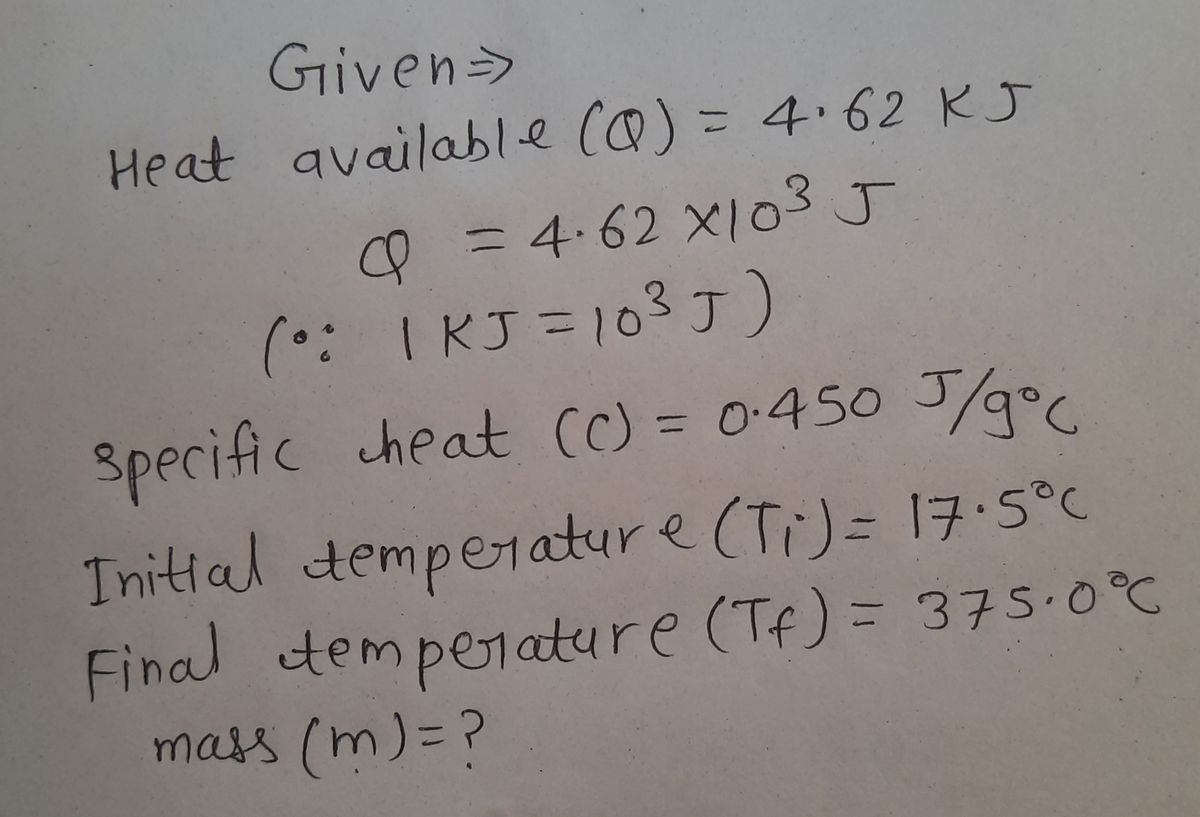 Given⇒
Heat available (Q) = 4.62 KJ
Q = 4.62 ×10³ J
(∵ 1 KJ = 10³ J)
specific heat (C) = 0.450 J/g°C
Initial temperature (Ti) = 17.5°C
Final temperature (Tf) = 375.0°C
mass (m) = ?